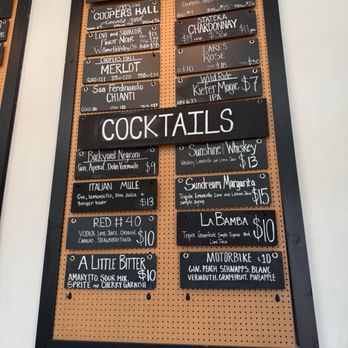 COOPERS HALL
LOVE and SQUALOR
PINOT NOIR
WILLAMETTE VALLEY, OR
COOPERS HALL
MERLOT
San Ferdinando
CHIANTI
STATERA
CHARDONNAY
LAKES
ROSÉ
Wild Ride
Kiefer Magic
IPA
$7
COCKTAILS
Backyard Negroni
Gin, Aperol, Dolin Vermouth
$9
ITALIAN MULE
Gin, Lemoncello, lime Juice +
ginger beer
$13
RED #40
VODKA, LIME JUICE, ORANGE
CURACAO, STRAWBERRY PUREE
$10
A LITTLE BITTER
AMARETTO, SOUR MIX,
SPRITE and CHERRY GARNISH
$10
Sunshine Whiskey
Whiskey, Limoncello and Lemon Juice
$13
Sundream Margarita
Tequila, Limoncello, Lime and Lemon Juice
Simple Syrup
$15
LA BAMBA
Tequila, Grapefruit, Simple Syrup and
Lime Juice
$10
MOTORBIKE $10
GIN, PEACH SCHNAPPS, BLANC
VERMOUTH, GRAPEFRUIT, PINEAPPLE